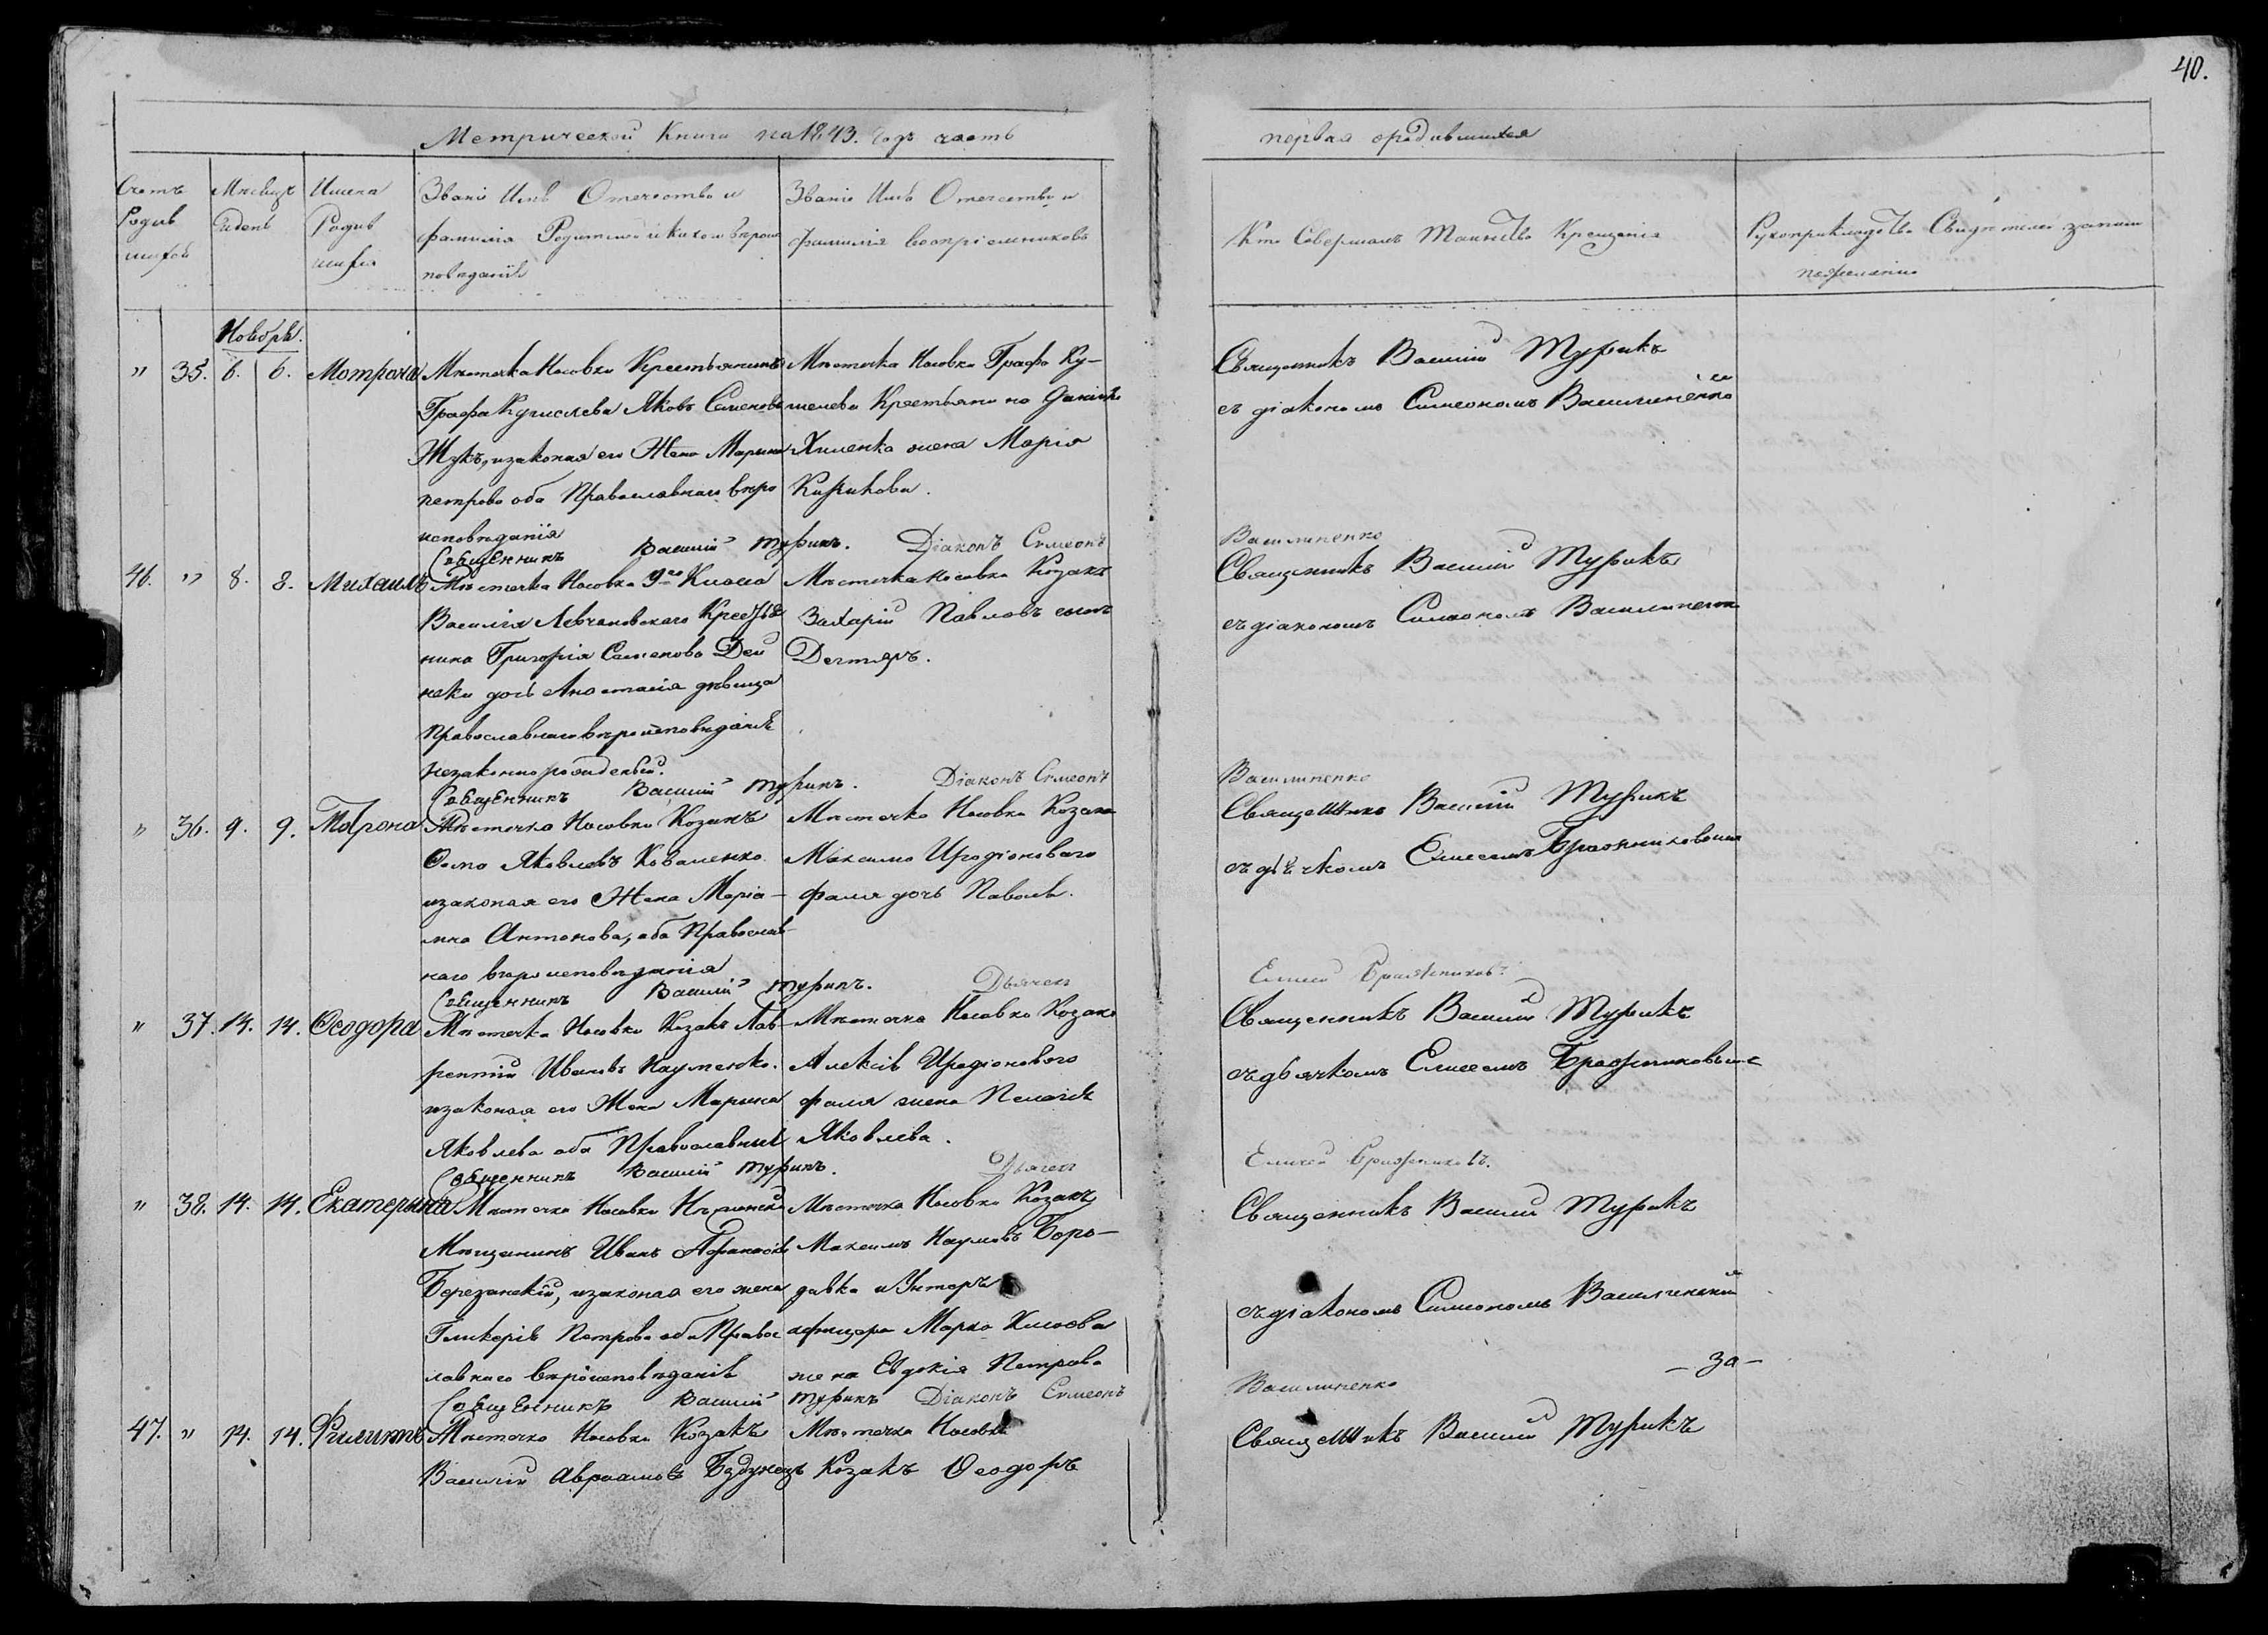 40.
Метрической Книги на 1843. Годъ часть
первая ородившихся
Счетъ
Родив
шихся
Мѣсяцъ
Идень
Имена
Родив
шихся
Званіе Имя Отечество и
фамилія Родителей икакого вѣроис
повѣданія
Званіе Имя Отечество и
фамилія воспріемниковъ
Кто Совершалъ Таинство Крещенія
Рукоприкладство Свидетелей записи
пожеланію
Ноябрь.
" 35. 6. 6. Мотрона
Мѣстечка Носовки Крестьянинъ
Графа Кушелева Яковъ Семеновъ
Жукъ, изаконая его Жена Марина
петрова оба Православнаго вѣро
исповѣданія
Мѣстечка Носовки Графа Ку-
шелева Крестьянина Данила
Хименка жена Марія
Священникъ Василій Турикъ
съ діакономъ Симеономъ Василиненко
Священникъ Василій Турикъ. Діаконъ Симеонъ
Василиненко
46. " 8. 8. Михаилъ
Мѣстечка Носовки 9го Класса
Василія Левчановскаго Крестья
нина Григорія Семенова Дей
неки дочь Анастасія дѣвица
Православнаго вѣроисповѣданія
незаконнорожденный.
Мѣстечка Носовки Козакъ
Захарій Павловъ сынъ
Дегтяръ.
Священникъ Василій Турикъ
съ діакономъ Симеономъ Василиненко
Священникъ Василій Турикъ. Діаконъ Симеонъ
Василиненко
" 36. 9. 9. Мотрона
Мѣстечка Носовки Козакъ
Фома Яковлевъ Коваленко
изаконая его Жена Маріа-
мна Антонова, оба Православ-
наго вѣроисповѣданія
Мѣстечка Носовки Козака
Максима Иродіоноваго
фаля дочь
Священникъ Василій Турикъ
съ дьячкомъ Елисеемъ Бражниковымъ
Священникъ Василій Турикъ. Дьячек
Елисей Бражниковъ.
" 37. 14. 14. Ѳеодора
Мѣстечка Носовки Козакъ Лав-
рентій Ивановъ Науменко.
изаконая его Жена Марина
Яковлева оба Православныя
Мѣстечка Носовки Козака
Алексія Иродіонового
фаля жена Пелагія
Яковлева.
Священникъ Василій Турикъ
съ дьячкомъ Елисеемъ Бражниковымъ
Священникъ Василій Турикъ. Дьячек
Елисей Бражниковъ.
" 38. 14. 14. Екатерина
Мѣстечка Носовки Нѣжинскій
Мѣщанинъ Иванъ Афанасіевъ
Березанскій, изаконая его жена
Гликерія Петрова оба Правос
лавнаго вѣроисповѣданія
Мѣстечка Носовки Козакъ
Максимъ Наумовъ Боро-
давка и Унтеръ
афицера Марка
жена Евдокія Петрова
Священникъ Василій Турикъ
съ діакономъ Симеономъ Василиненкомъ
Священникъ Василій Турикъ Діаконъ Симеонъ
Василиненко
— за —
47. " 14. 14. Филиппъ
Мѣстечка Носовки Козакъ
Василій Авраамовъ
Мѣстечка Носовки
Козакъ Ѳеодоръ
Священникъ Василій Турикъ